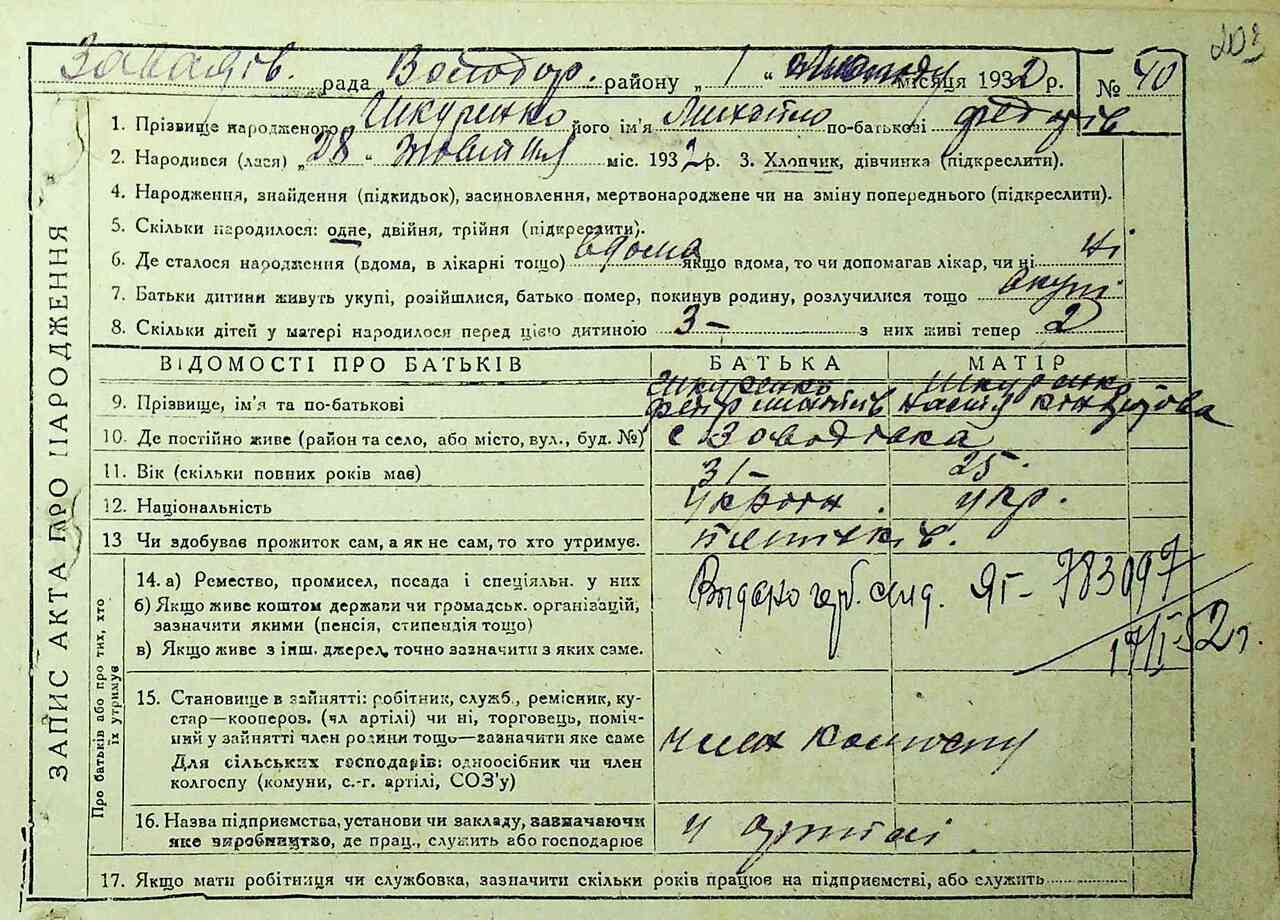 203
Завадів. рада Володар. району „ 1 “ листопаду місяця 1932 р. № 40
1. Прізвище народженого Шкуренко його ім'я Михайло по-батькові Федорів.
2. Народився (лася) „28“ жовтня міс. 1932 р. 3. Хлопчик, дівчинка (підкреслити).
4. Народження, знайдення (підкидьок), засиновлення, мертвонароджене чи на зміну попереднього (підкреслити).
5. Скільки народилося: одне, двійня, трійня (підкреслити).
6. Де сталося народження (вдома, в лікарні тощо) вдома якщо вдома, то чи допомагав лікар, чи ні ні
7. Батьки дитини живуть укупі, розійшлися, батько помер, покинув родину, розлучилися тощо укупі
8. Скільки дітей у матері народилося перед цією дитиною 3– з них живі тепер 2
ЗАПИС АКТА ПРО НАРОДЖЕННЯ
ВІДОМОСТІ ПРО БАТЬКІВ БАТЬКА МАТІР
Шкуренко Шкуренк
9. Прізвище, ім'я та по-батькові
10. Де постійно живе (район та село, або місто, вул., буд. №) с Заводівка
11. Вік (скільки повних років має) 31– 25.
12. Національність Україн. укр.
13 Чи здобуває прожиток сам, а як не сам, то хто утримує.
Про батьків або про тих, хто їх утримує
14. а) Ремество, промисел, посада і спеціяльн. у них
б) Якщо живе коштом держави чи громадськ. організацій,
зазначити якими (пенсія, стипендія тощо)
в) Якщо живе з інш. джерел, точно зазначити з яких саме.
Видано ЯГ- 783097
17/I-52 г.
15. Становище в зайнятті: робітник, служб., ремісник, ку-
стар—кооперов. (чл артілі) чи ні, торговець, поміч-
ний у зайнятті член родини тощо—зазначити яке саме
Для сільських господарів: одноосібник чи член
колгоспу (комуни, с.-г. артілі, СОЗ'у)
член колгоспу
16. Назва підприємства, установи чи закладу, зазначаючи
яке виробництво, де прац., служить або господарює
у артілі
17. Якщо мати робітниця чи службовка, зазначити скільки років працює на підприємстві, або служить